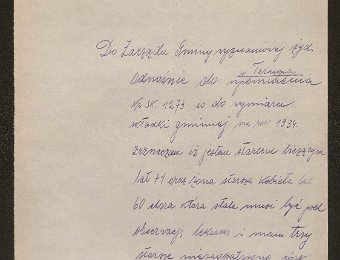 Do Zarządu Gminy wyznaniowej żyd
w Tarnowie
Odnośnie do upomnienia
Nr. 1273 co do wymiaru
składki gminnej na rok 1934.
Zaznaczam iż jestem starcem liczącym
lat 71 oraz żona starsza kobieta lat
60 chora która stale musi być pod
obserwacją lekarską i mam trzy
starsze niezaopatrzone córki